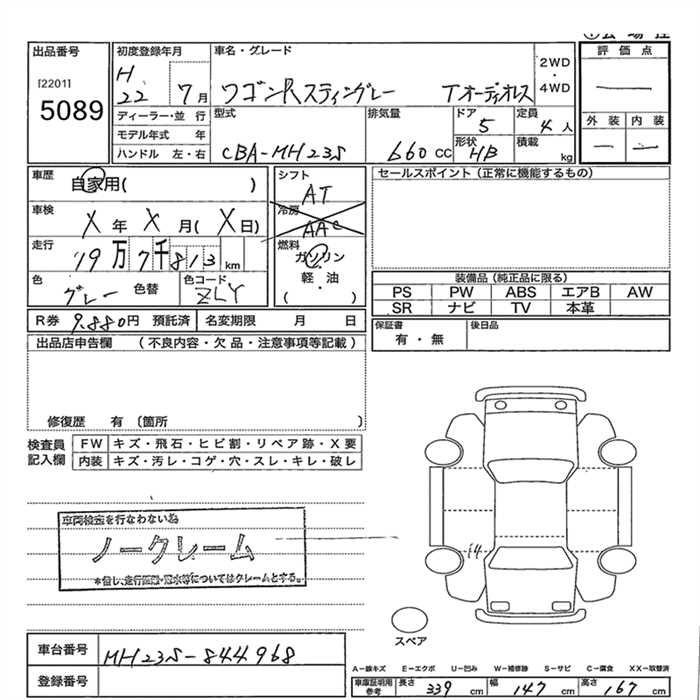 出品番号
[2201]
5089
初度登録年月
H
22 7月
ディーラー・並 行
モデル年式 年
ハンドル 左・右
車名・グレード
ワゴンRスティングレー Tオーディオレス
2WD
4WD
型式
CBA-MH23S
排気量
660 CC
ドア
5
定員
4 人
形状
HB
積載
kg
評価点
外装 内装
車歴
自家用( )
車検
X 年 X 月( X 日)
走行
19万7千813 km
色
グレー
色替
色コード
ZLY
シフト
AT
冷房
AAC
燃料
ガソリン
軽・油
( )
セールスポイント (正常に機能するもの)
装備品 (純正品に限る)
PS PW ABS エアB AW
SR ナビ TV 本革
保証書
有・無
後日品
R券 9.880円 預託済 名変期限 月 日
出品店申告欄 (不良内容・欠品・注意事項等記載)
修復歴 有 〔箇所 〕
検査員
記入欄
FW キズ・飛石・ヒビ割・リペア跡・X要
内装 キズ・汚レ・コゲ・穴・スレ・キレ・破レ
車両検査を行なわない為
ノークレーム
*但し、走行距離・冠水等についてはクレームとする。
スペア
車台番号 MH23S-844968
登録番号
A-線キズ E-エクボ U-凹み W-補修跡 S-サビ C-腐食 XX-取替済
車庫証明用
参考
長さ 339 cm 幅 147 cm 高さ 167 cm